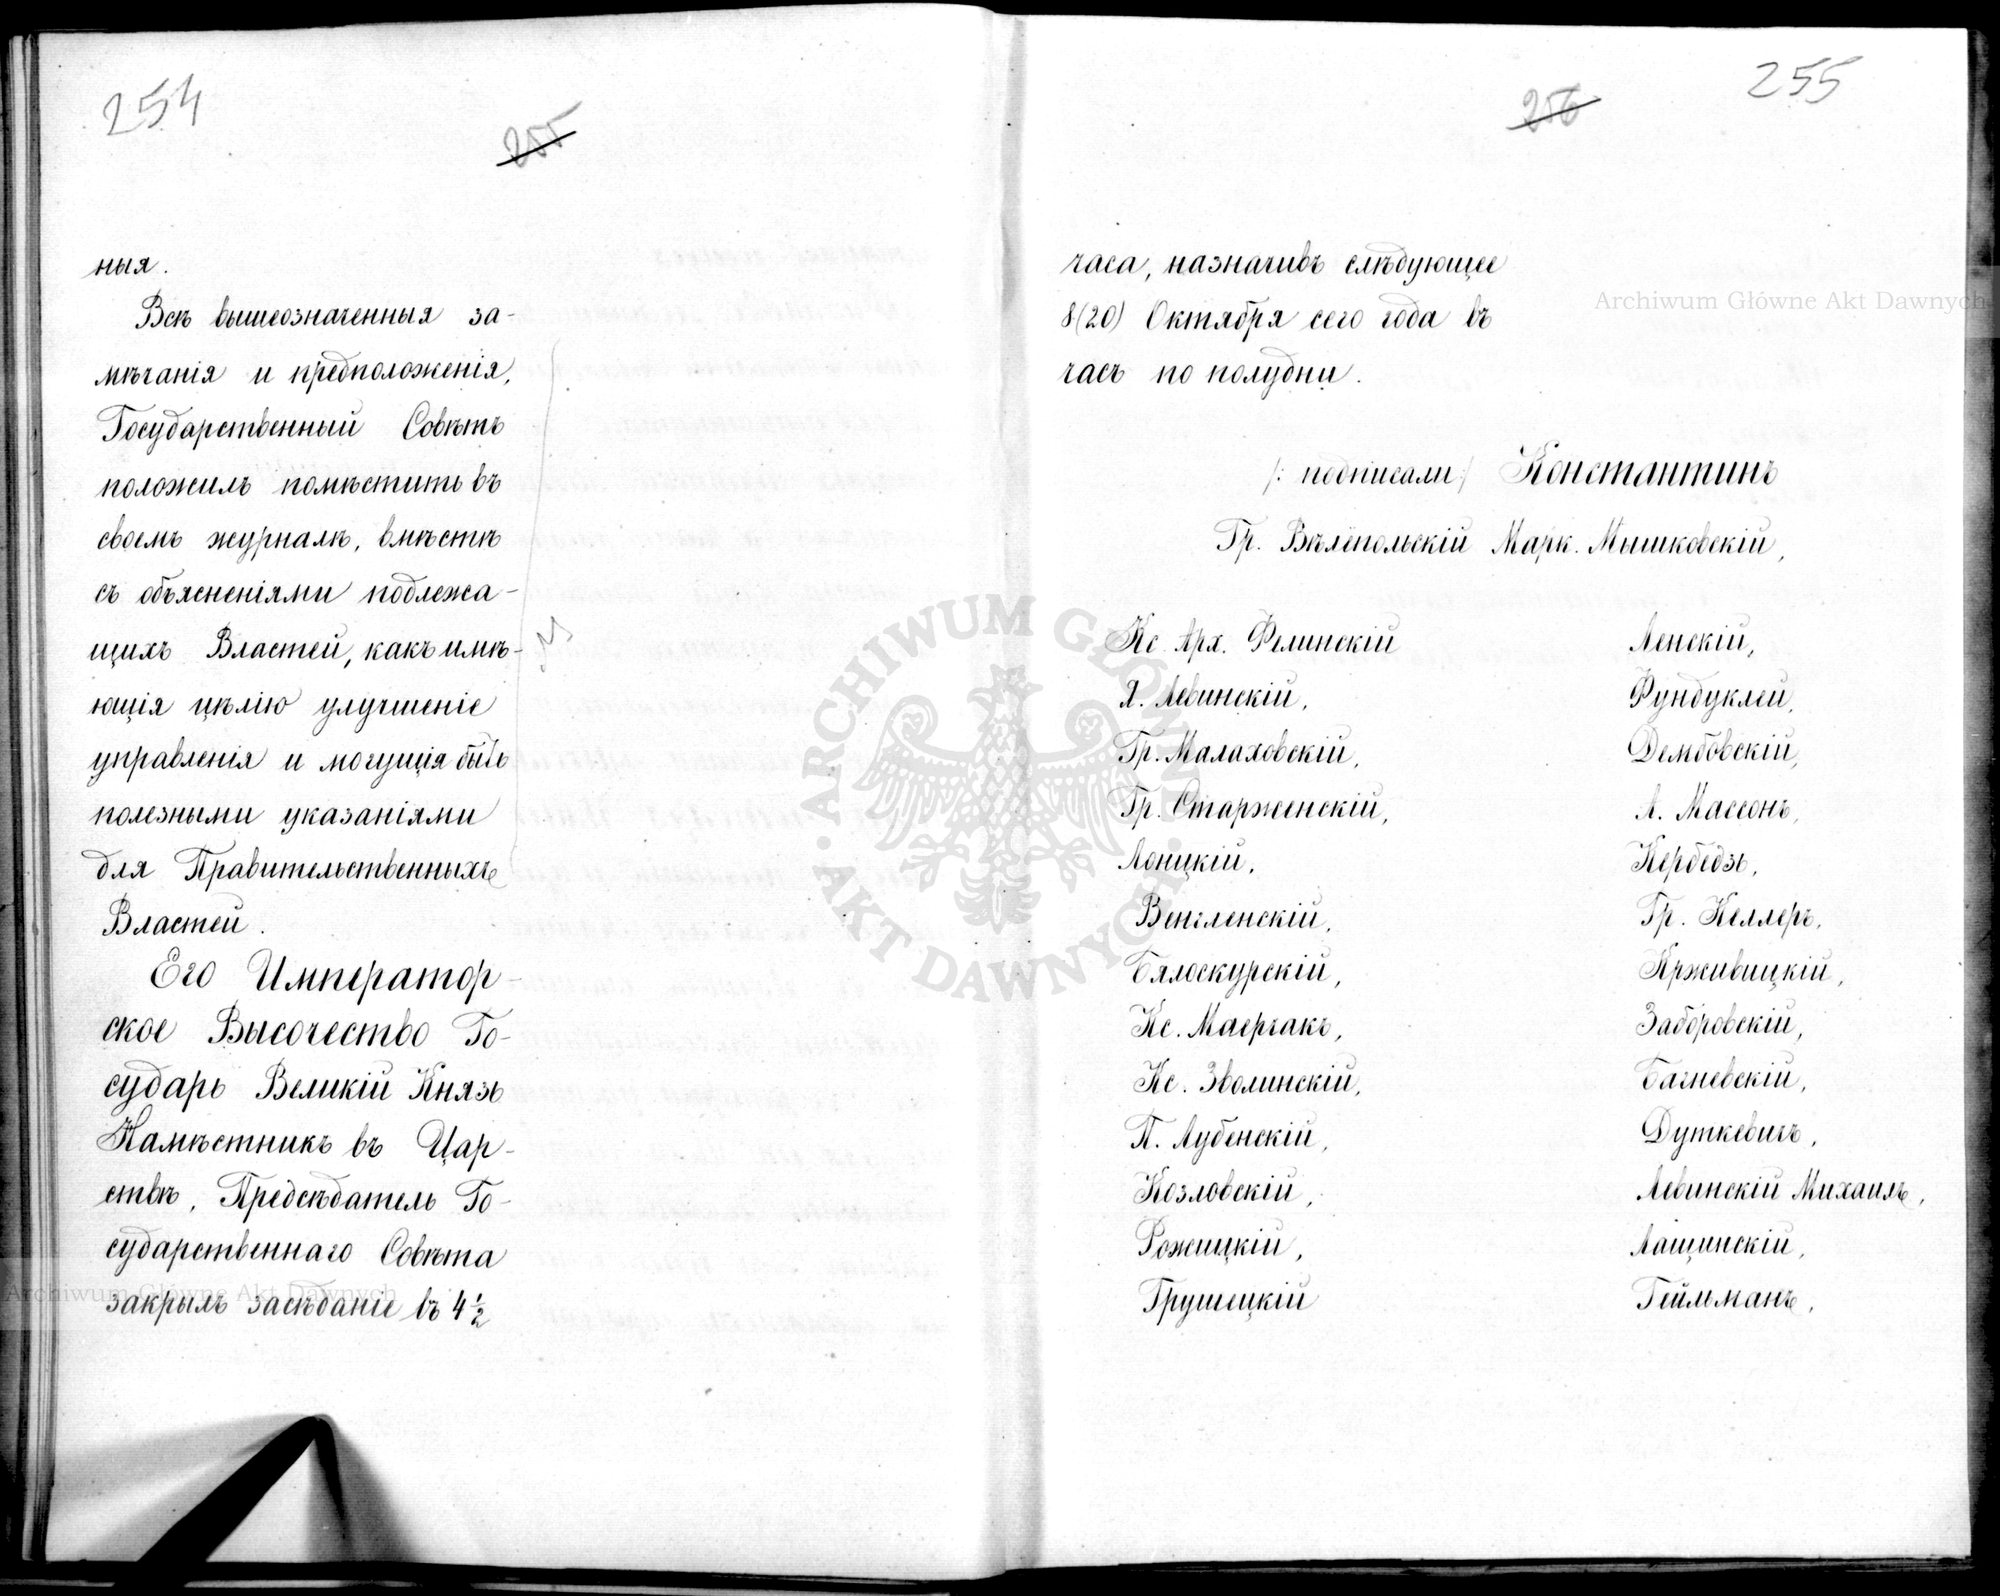 254
255
ныя.
Всѣ вышеозначенныя за-
мѣчанія и предположенія,
Государственный Совѣтъ
положилъ помѣстить въ
своемъ журналѣ, вмѣстѣ
съ объясненіями подлежа-
щихъ Властей, какъ имѣ-
ющія цѣлію улучшеніе
управленія и могущія быть
полезными указаніями
для Правительственныхъ
Властей.
Его Император-
ское Высочество Го-
сударь Великій Князь
Намѣстникъ въ Цар-
ствѣ, Предсѣдатель Го-
сударственнаго Совѣта
закрылъ засѣданіе въ 4 1/2
256
255
часа, назначивъ слѣдующее
8(20) Октября сего года въ
часъ по полудни.
/: подписали :/ Константинъ
Гр. Вѣлёпольскій Марк. Мышковскій,
Кс. Арх. Фелинскій
Я. Левинскій,
Гр. Малаховскій,
Гр. Старженскій,
Лонцкій,
Венгленскій,
Бялоскурскій,
Кс. Маерчакъ,
Кс. Зволинскій,
П. Лубенскій,
Козловскій,
Рожицкій,
Грушецкій
Ленскій,
Фундуклей,
Дембовскій,
А. Массонъ,
Кербедзь,
Гр. Келлеръ,
Крживицкій,
Заборовскій,
Багневскій,
Дуткевичъ,
Левинскій Михаилъ,
Лащинскій,
Гейльманъ,
Archiwum Główne Akt Dawnych
ARCHIWUM GŁÓWNE
AKT DAWNYCH
Archiwum Główne Akt Dawnych